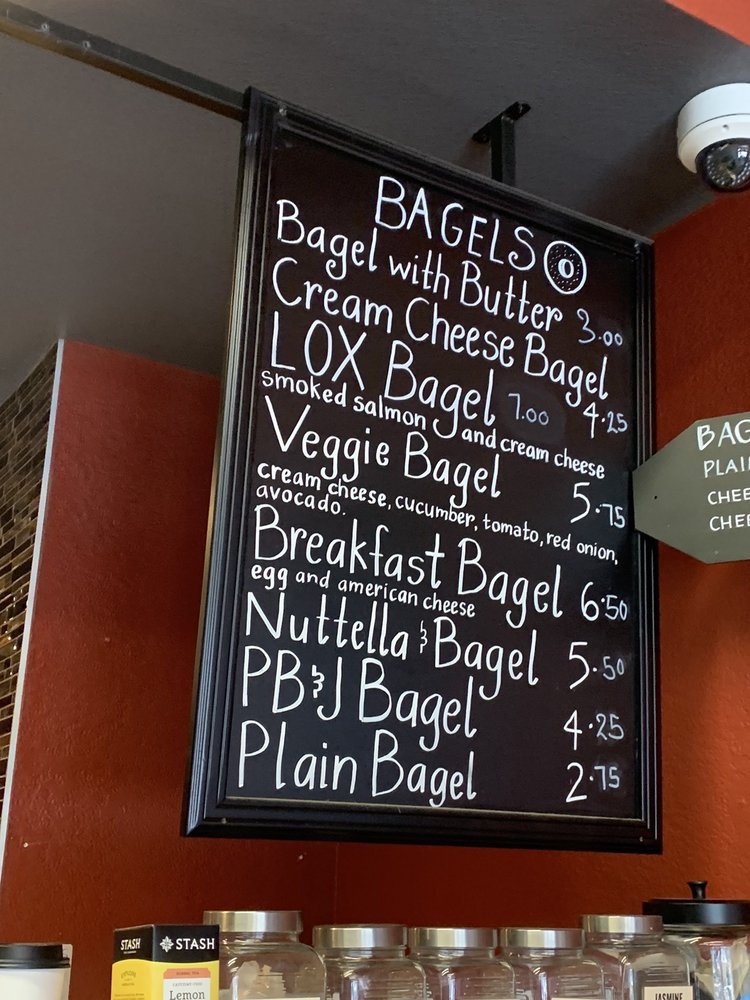 BAGELS
Bagel with Butter 3.00
Cream Cheese Bagel 4.25
LOX Bagel 7.00
smoked salmon and cream cheese
Veggie Bagel 5.75
cream cheese, cucumber, tomato, red onion,
avocado.
Breakfast Bagel 6.50
egg and american cheese
Nuttella & Bagel 5.50
PB&J Bagel 4.25
Plain Bagel 2.75
BAG
PLAI
CHEE
CHEE
STASH
STASH
Lemon
JASMINE